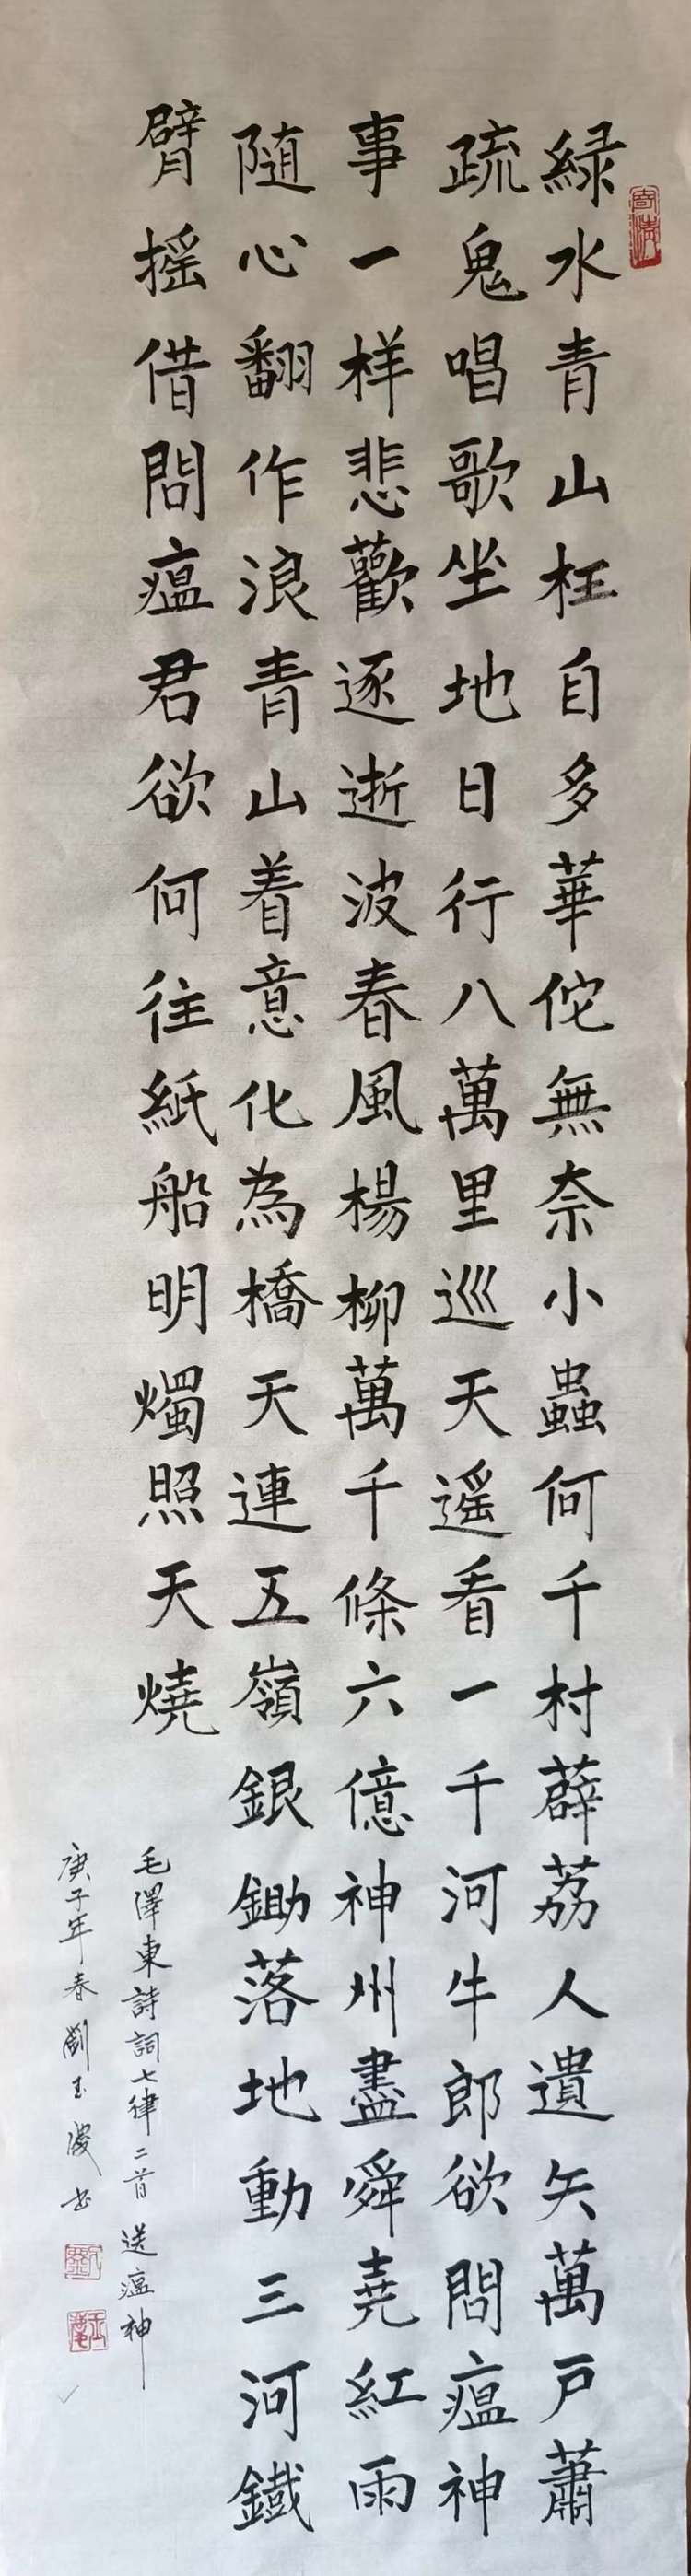 緑水青山枉自多華佗無奈小蟲何千村薜荔人遺矢萬户蕭
疏鬼唱歌坐地日行八萬里巡天遥看一千河牛郎欲問瘟神
事一样悲歡逐逝波春風楊柳萬千條六億神州盡舜堯紅雨
随心翻作浪青山着意化為橋天連五嶺銀鋤落地動三河鐵
臂摇借問瘟君欲何往紙船明燭照天燒
毛澤東詩詞七律二首送瘟神
庚子年春劉玉波书